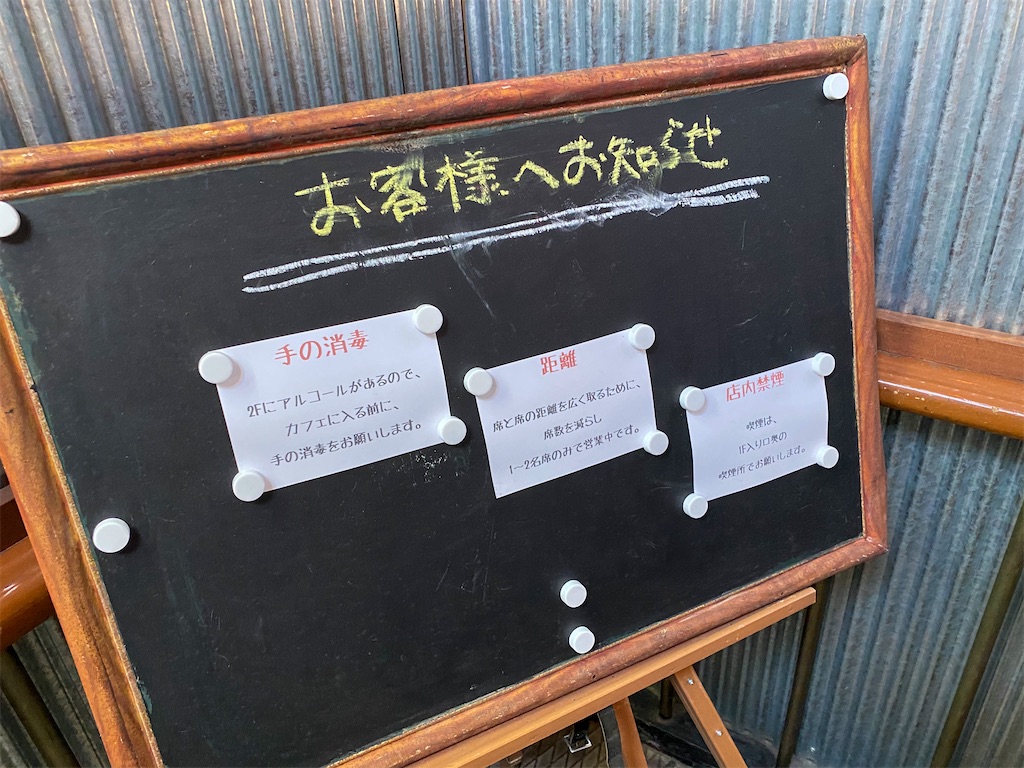 お客様へお知らせ
手の消毒
2Fにアルコールがあるので、
カフェに入る前に、
手の消毒をお願いします。
距離
席と席の距離を広く取るために、
席数を減らし
1〜2名席のみで営業中です。
店内禁煙
喫煙は、
1F入り口奥の
喫煙所でお願いします。